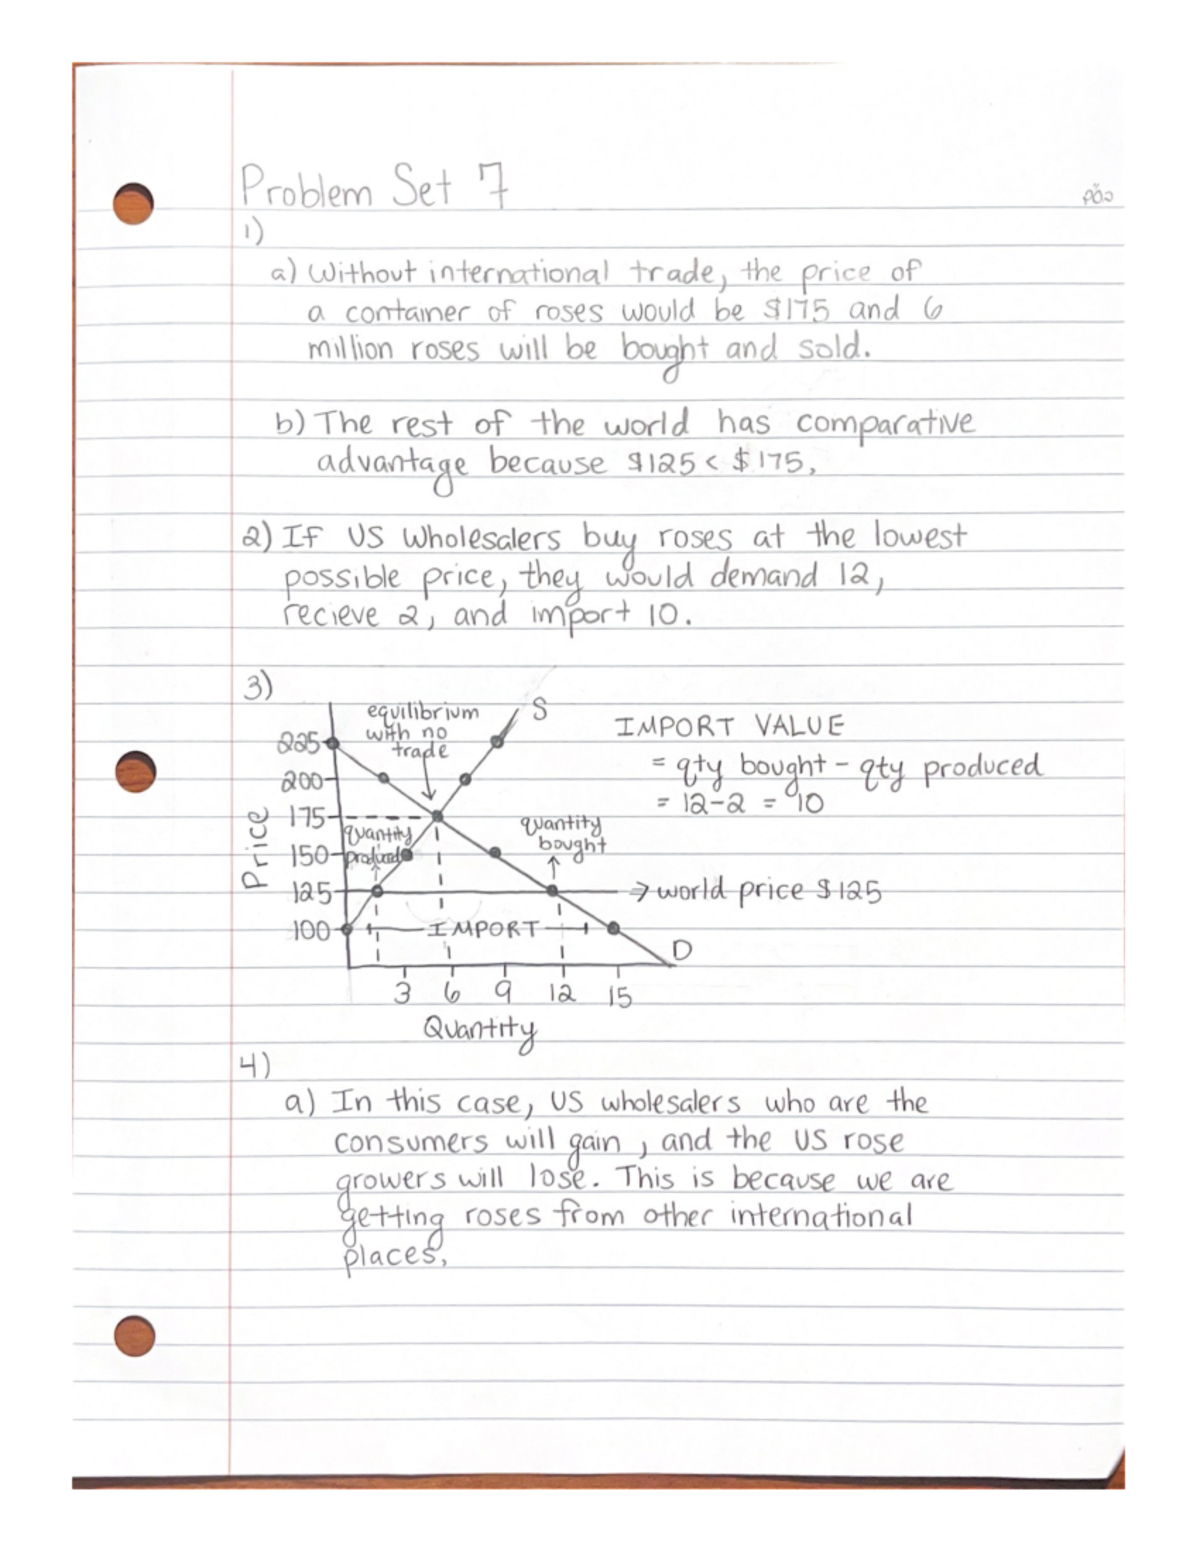 Problem Set 7
1)
a) Without international trade, the price of
a container of roses would be $175 and 6
million roses will be bought and sold.
b) The rest of the world has comparative
advantage because $125 < $175.
2) If US wholesalers buy roses at the lowest
possible price, they would demand 12,
recieve 2, and import 10.
3)
equilibrium
with no
trade
S
IMPORT VALUE
= qty bought - qty produced
= 12-2 = 10
225
200
175
150
125
100
Price
quantity
produced
quantity
bought
→ world price $125
IMPORT
D
3 6 9 12 15
Quantity
4)
a) In this case, US wholesalers who are the
consumers will gain, and the US rose
growers will lose. This is because we are
getting roses from other international
places.